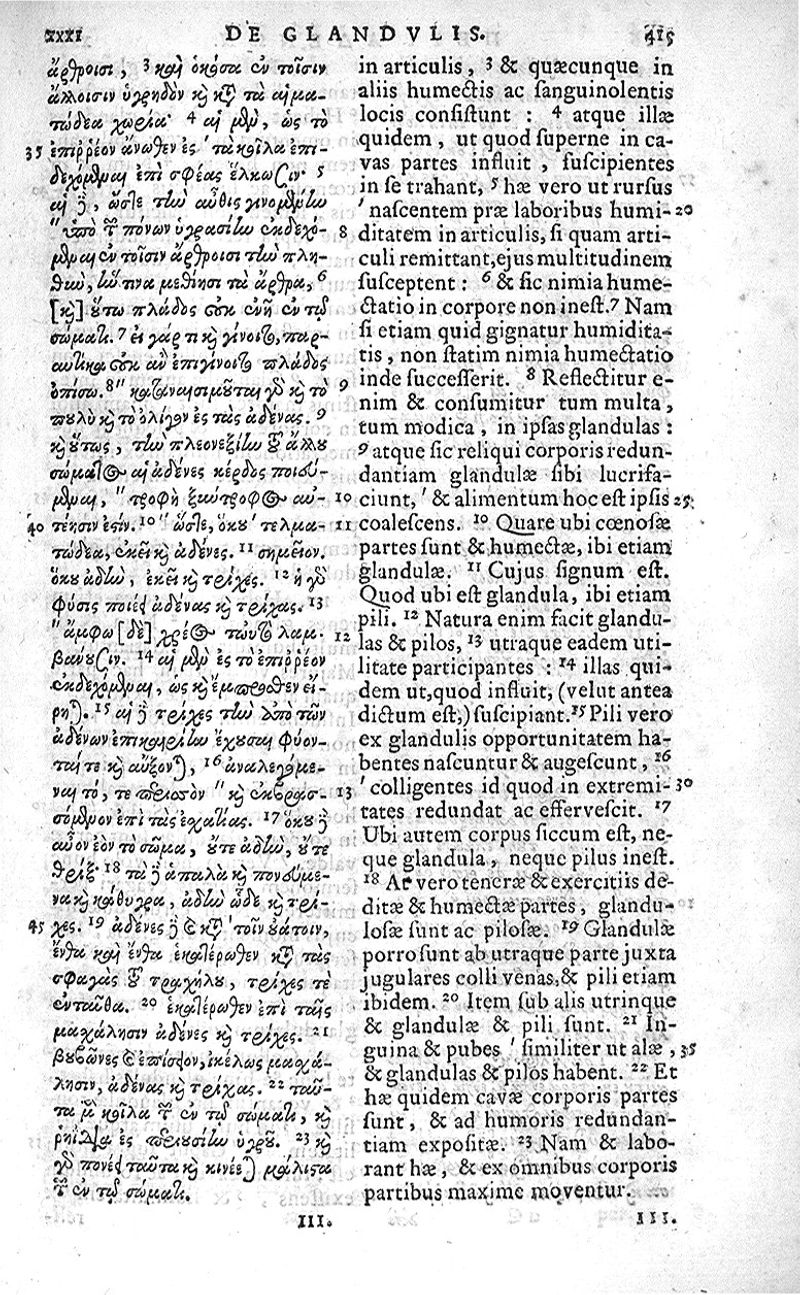 XXXI DE GLANDVLIS. 415
ἄρθροισι, 3 καὶ ὁκόσα ἐν τοῖσιν
ἄλλοισιν ὑγρηδὸν καὶ κατὰ τὰ αἱμα-
τώδεα χωρία· 4 αἱ μὲν, ὡς τὸ
35 ἐπιῤῥέον ἄνωθεν ἐς ' τὰ κοῖλα ἐπι-
δεχόμεναι ἐπὶ σφέας ἕλκωσιν· 5
αἱ δὲ, ὥστε τὴν αὖθις γινομένην
" ὑπὸ τῶν πόνων ὑγρασίην ἐκδεχό- 8
μεναι ἐν τοῖσιν ἄρθροισι τὴν πλη-
θὺν, ἥντινα μεθίησι τὰ ἄρθρα, 6
[καὶ] οὕτω πλάδος οὐκ ἐνῆ ἐν τῷ
σώματι. 7 εἰ γάρ τι καὶ γίνοιτο, παρ-
αυτίκα οὐκ ἂν ἐπιγίνοιτο πλάδος
ὀπίσω. 8 " καταναισιμοῦται γὰρ καὶ τὸ 9
πουλὺ καὶ τὸ ὀλίγον ἐς τὰς ἀδένας. 9
καὶ οὕτως, τὴν πλεονεξίην τοῦ ἄλλου
σώματος αἱ ἀδένες κέρδος ποιού-
μεναι, " τροφὴ ξύντροφος αὐ- 10
40 τέησιν ἐστίν. 10 " ὥστε, ὅκου ' τελμα- 11
τώδεα, ἐκεῖ καὶ ἀδένες. 11 σημεῖον.
ὅκου ἀδὴν, ἐκεῖ καὶ τρίχες. 12 ἡ γὰρ
φύσις ποιέει ἀδένας καὶ τρίχας. 13
" ἄμφω [δὲ] χρέος τωὐτὸ λαμ- 12
βάνουσιν. 14 αἱ μὲν ἐς τὸ ἐπιῤῥέον
ἐκδεχόμεναι, ὡς καὶ ἔμπροσθεν εἴ-
ρηται. 15 αἱ δὲ τρίχες τὴν ἀπὸ τῶν
ἀδένων ἐπικαιρίην ἔχουσαι φύον-
ταί τε καὶ αὔξονται, 16 ἀναλεγόμε-
ναι τό, τε περισσὸν " καὶ ἐκβρασ- 13
σόμενον ἐπὶ τὰς ἐσχατιάς. 17 ὅκου δὲ
αὖον ἐὸν τὸ σῶμα, οὔτε ἀδὴν, οὔτε
θρίξ· 18 τὰ δὲ ἁπαλὰ καὶ πονούμε-
να καὶ κάθυγρα, ἀδὴν ὧδε καὶ τρί-
45 χες. 19 ἀδένες δὲ καὶ κατὰ ' τοῖν οὐάτοιν,
ἔνθα καὶ ἔνθα ἑκατέρωθεν κατὰ τὰς
σφαγὰς τοῦ τραχήλου, τρίχες τὲ
ἐνταῦθα. 20 ἑκατέρωθεν ἐπὶ ταῖς
μασχάλησιν ἀδένες καὶ τρίχες. 21
βουβῶνες καὶ ἐπίσειον, ἰκέλως μασχά-
λησιν, ἀδένας καὶ τρίχας. 22 ταῦ-
τα μὲν κοῖλα τῶν ἐν τῷ σώματι, καὶ
ῥηίδια ἐς περιουσίην ὑγροῦ. 23 καὶ
γὰρ πονέει ταῦτα καὶ κινέεται μάλιστα
τῶν ἐν τῷ σώματι.
III.
in articulis, 3 & quæcunque in
aliis humectis ac sanguinolentis
locis consistunt : 4 atque illæ
quidem, ut quod superne in ca-
vas partes influit, suscipientes
in se trahant, 5 hæ vero ut rursus
' nascentem præ laboribus humi- 20
ditatem in articulis, si quam arti-
culi remittant, ejus multitudinem
susceptent : 6 & sic nimia hume-
ctatio in corpore non inest. 7 Nam
si etiam quid gignatur humidita-
tis, non statim nimia humectatio
inde successerit. 8 Reflectitur e-
nim & consumitur tum multa,
tum modica, in ipsas glandulas :
9 atque sic reliqui corporis redun-
dantiam glandulæ sibi lucrifa-
ciunt, ' & alimentum hoc est ipsis 25
coalescens. 10 Quare ubi cœnosæ
partes sunt & humectæ, ibi etiam
glandulæ. 11 Cujus signum est.
Quod ubi est glandula, ibi etiam
pili. 12 Natura enim facit glandu-
las & pilos, 13 utraque eadem uti-
litate participantes : 14 illas qui-
dem ut, quod influit, (velut antea
dictum est,) suscipiant. 15 Pili vero
ex glandulis opportunitatem ha-
bentes nascuntur & augescunt, 16
' colligentes id quod in extremi- 30
tates redundat ac effervescit. 17
Ubi autem corpus siccum est, ne-
que glandula, neque pilus inest.
18 At vero teneræ & exercitiis de-
ditæ & humectæ partes, glandu-
losæ sunt ac pilosæ. 19 Glandulæ
porro sunt ab utraque parte juxta
jugulares colli venas, & pili etiam
ibidem. 20 Item sub alis utrinque
& glandulæ & pili sunt. 21 In-
guina & pubes ' similiter ut alæ, 35
& glandulas & pilos habent. 22 Et
hæ quidem cavæ corporis partes
sunt, & ad humoris redundan-
tiam expositæ. 23 Nam & labo-
rant hæ, & ex omnibus corporis
partibus maxime moventur.
III.